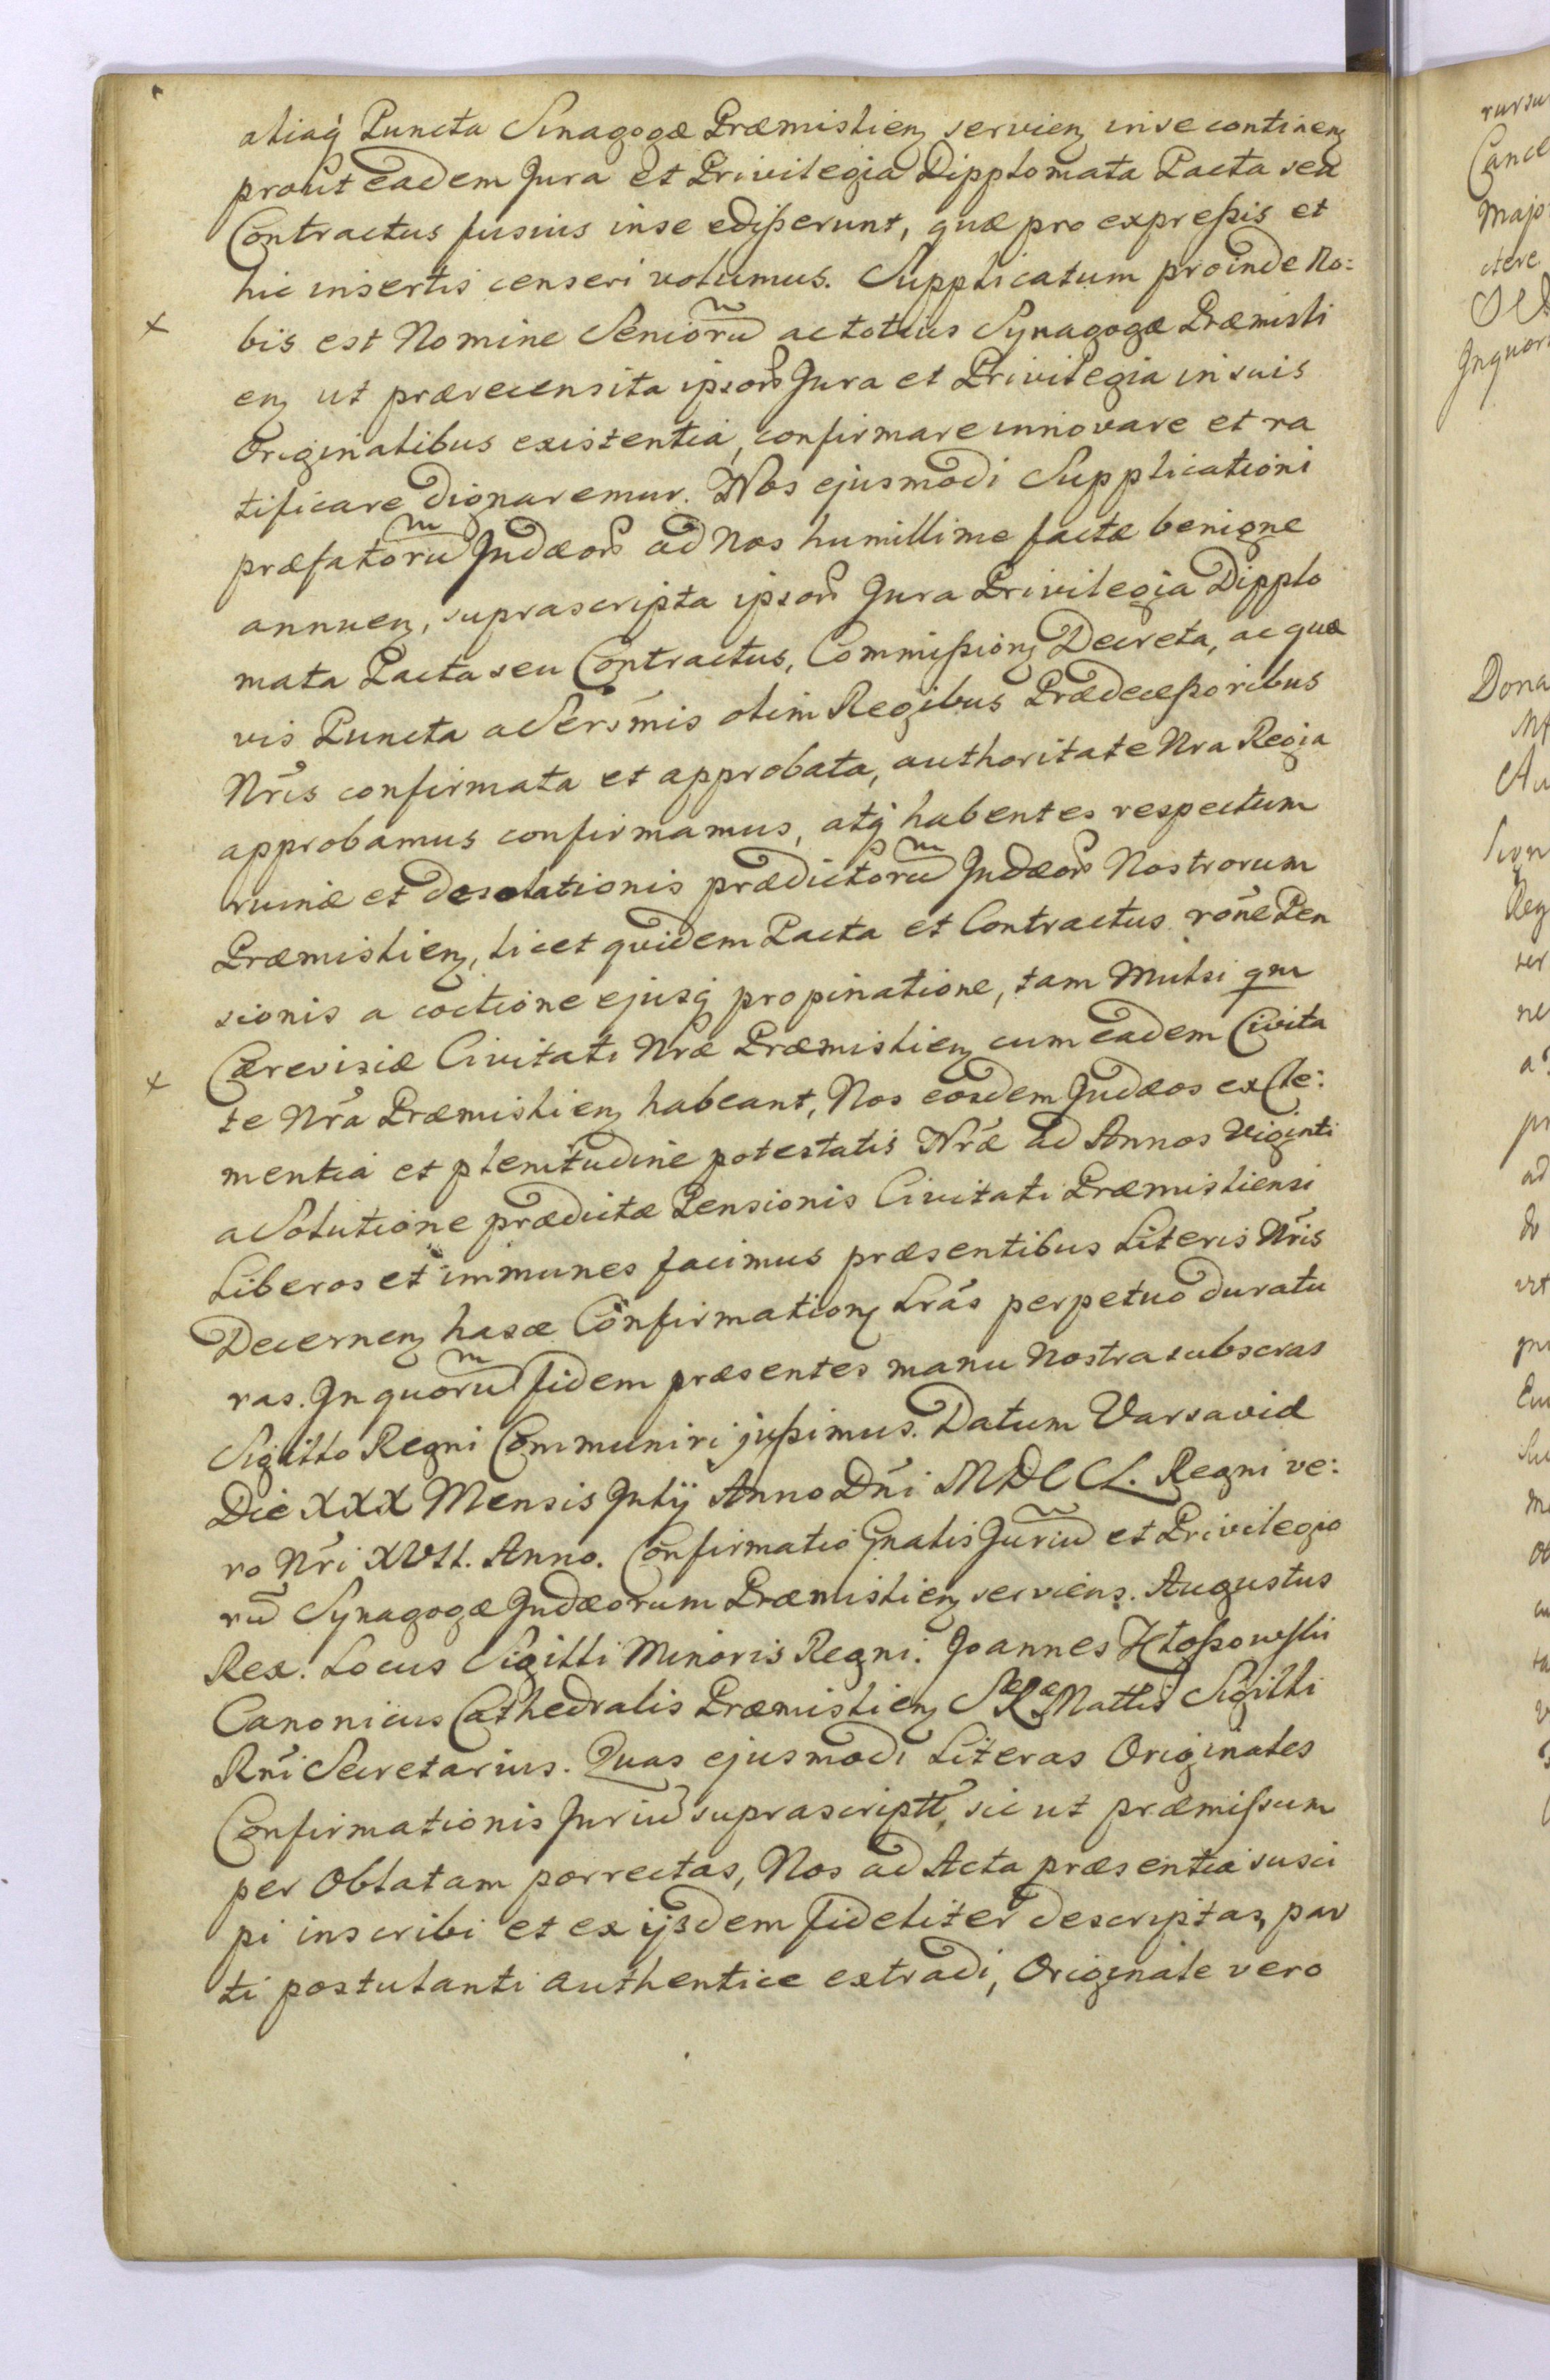 aliaq́ Puncta Sinagogæ Præmislien̄ servien̄ in se continen̄
prout eadem Jura et Privilegia Dipplomata Pacta seu
Contractus fusius in se edisserunt, quæ pro expressis et
hic insertis censeri volumus. Supplicatum proinde No:
bis est Nomine Seniorũ ac totius Synagogæ Præmisli
en̄ ut prærecensita ipsor̃ Jura et Privilegia in suis
Originalibus existentia, confirmare innovare et ra
tificare dignaremur. Nos ejusmodi Supplicationi
præfatorũ Judæor̃ ad Nos humillime factæ benigne
annuen̄, suprascripta ipsor̃ Jura Privilegia Dipplo
mata Pacta seu Contractus, Commission̄ Decreta, ac quæ
vis Puncta a Serm̃is olim Regibus Prædecessoribus
Nrĩs confirmata et approbata, authoritate Nra Regia
approbamus confirmamus, atq́ habentes respectum
ruinæ et desolationis prædictorũ Judæor̃ Nostrorum
Præmislien̄, licet quidem Pacta et Contractus rõne Pen
sionis a coctione ejusq́ propinatione, tam Mulsi qm
Cærevisiæ Civitati Nræ Præmislien̄ cum eadem Civita
te Nrã Præmislien̄ habeant, Nos eosdem Judæos ex Cle:
mentia et plenitudine potestatis Nrǽ ad Annos Viginti
a Solutione prædictæ Pensionis Civitati Præmisliensi
Liberos et immunes facimus præsentibus Literis Nrĩs
Decernen̄ hasce Confirmation̄ Lrãs perpetuo duratu
ras. In quorũ fidem præsentes manu Nostra subscras
Sigillo Regni Communiri jussimus. Datum Varsaviæ
Die XXX Mensis Julij Anno Dñi MDCCL. Regni ve:
ro Nrĩ XVII. Anno. Confirmatio Gnalis Juriũ et Privilegio
rũ Synagogæ Judæorum Præmislien̄ serviens. Augustus
Rex. Locus Sigilli Minoris Regni. Joannes Kłossowski
Canonicus Cathedralis Præmislien̄ SæRæ Mattis Sigilli
Rñi Secretarius. Quas ejusmodi Literas Originales
Confirmationis Juriũ suprascriptt, sic ut præmissum
per Oblatam porrectas, Nos ad Acta præsentia susci
pi inscribi et ex ijsdem fideliter descriptas, par
ti postulanti authentice extradi, Originale vero